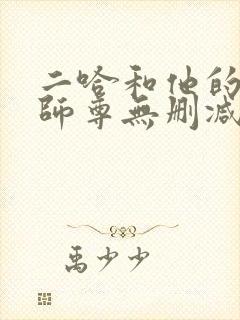 二哈和他的
師尊無刪減
禹少少